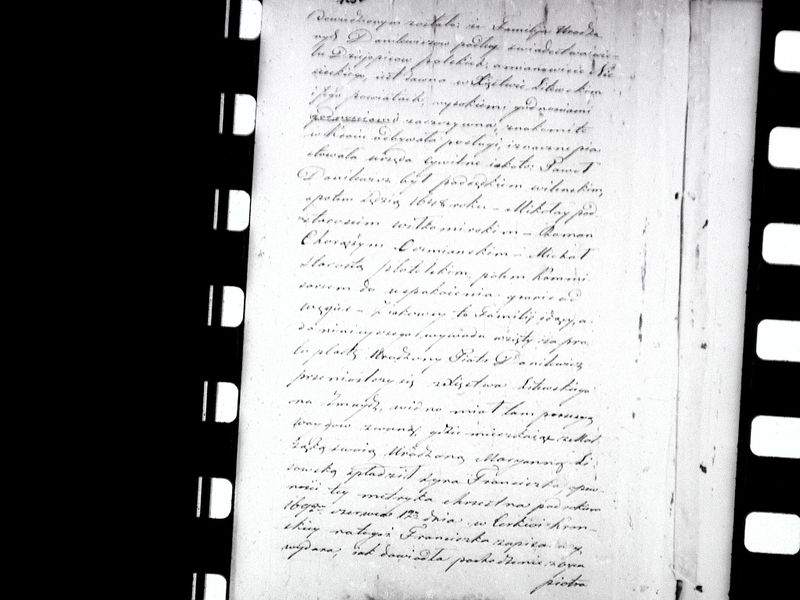 dowiedzionym zostało: że Familija Urodzo
nych Danilewiczow podług świadectwa wie
lu Dziejopisow polskich, a mianowicie Nie
sieckiego, jest dawna w Xięstwie Litewskim
i Jego powiatach, wysokiemi godnościami
zaszczycona, znakomite
w kraiu odbywała posługi, i znaczne pia
stowała urzęda Cywilne iako to: Paweł
Danilewicz był podsędkiem wileńskim,
a potem Sędzią 1648 roku – Mikołay pod
starościm wiłkomirskim – Roman
Chorążym Oszmianskim – Michał
Starosta płotelskim, potem Kommi
sarzem do uspokoienia granic od
węgier – Z takowey to Familij idący, a
do niniejszego wywodu wzięty za pra
Urodzony Piotr Danilewicz
przeniosłszy się z Xięstwa Litewskiego
na Żmuydź, wiedno miał tam
zwaną, gdzie mieszkaiąc z Mał
żąką swoią Urodzoną Maryanną Li
sowską spłodził syna Franciszka, iako
ności tey metryka chrzestna pod rokiem
1690 czerwca 12 dnia w Cerkwi Kroż
skiey na tegoż Franciszka zapisana y
wydana, iak dowiodła pochodzenie onego
piotra